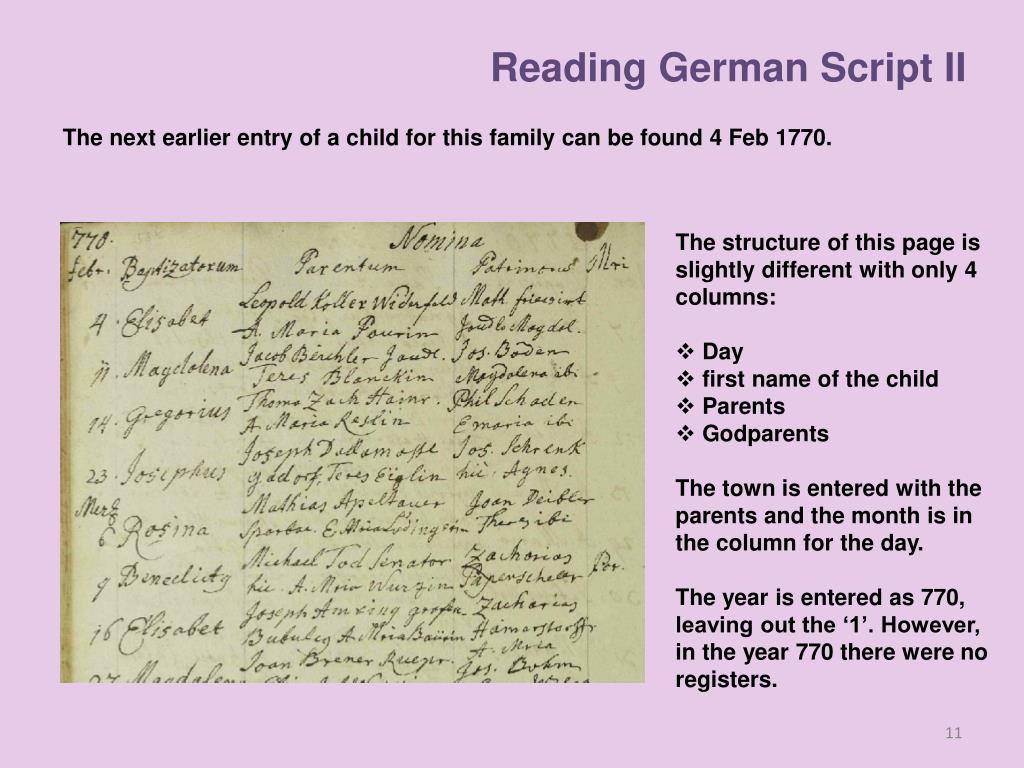 Reading German Script II
The next earlier entry of a child for this family can be found 4 Feb 1770.
770. Nomina
febr. Baptizatorum Parentum Patrinorum
Leopold Koller Widerfeld Math.
4. Elisabet A. Maria Paurin Magdal.
Jacob Berchler Jos. Boden
11. Magdalena Teres Blanckin Magdalena ibi
Thoma Zach Hainr. Phil Schaden
14. Gregorius A. Maria Reslin Emaria ibi
Joseph Jos. Schrenk
23. Josephus Teres hic. Agnes.
Merz Mathias Joan Deibler
6 Rosina Theres ibi
Michael Tod Senator Zacharias
9 Benedicty hic. A. Mria Wurzin
Joseph Zacharias
16 Elisabet A. Mria
Joan Brener A. Mria
27 Magdalena Jos. Bohm
The structure of this page is
slightly different with only 4
columns:
❖ Day
❖ first name of the child
❖ Parents
❖ Godparents
The town is entered with the
parents and the month is in
the column for the day.
The year is entered as 770,
leaving out the ‘1’. However,
in the year 770 there were no
registers.
11